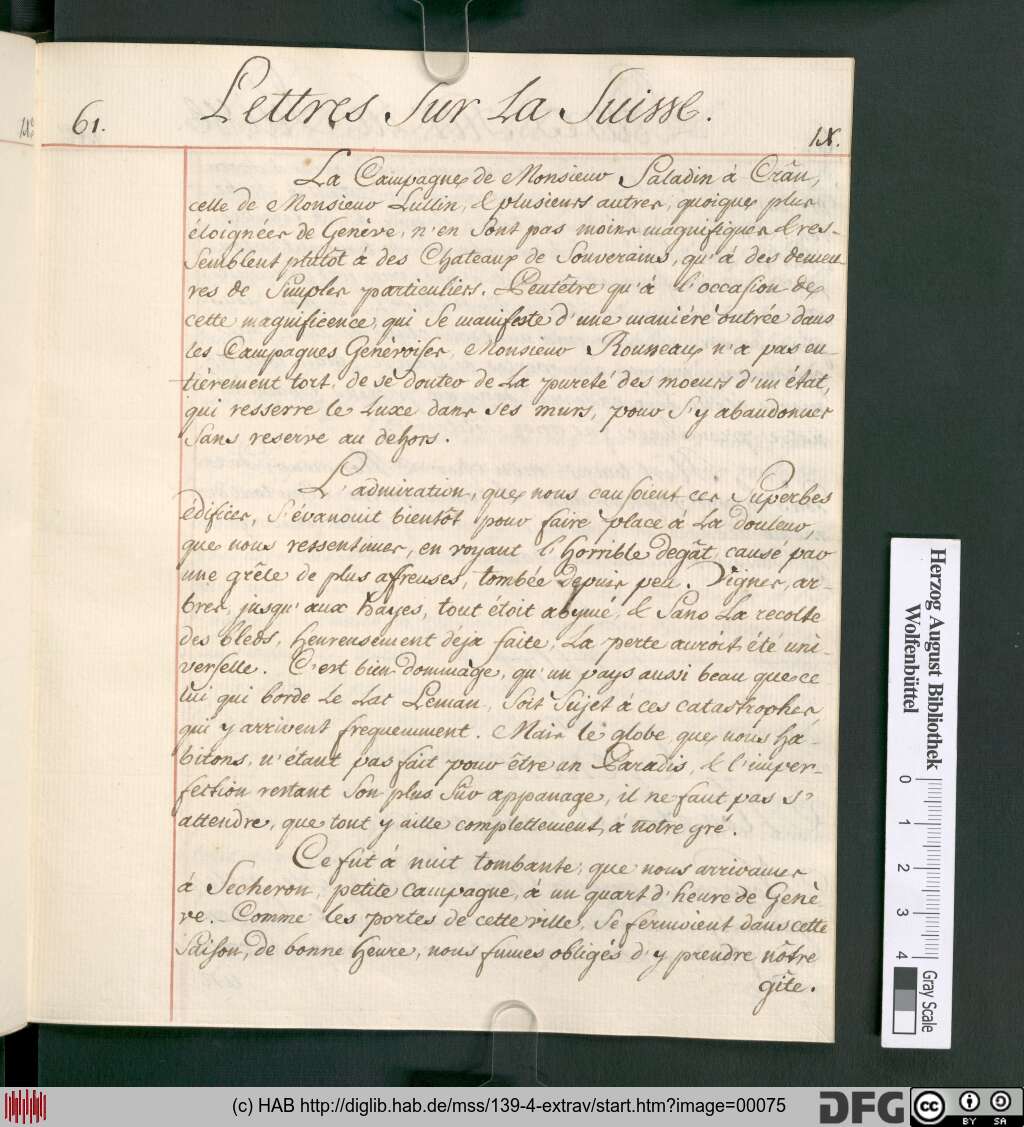 61.
Lettres Sur La Suisse.
IX.
La Campagne de Monsieur Saladin à Crân,
celle de Monsieur Lullin, & plusieurs autres, quoique plus
éloignées de Genève, n'en sont pas moins magnifiques & res-
semblent plutôt à des Chateaux de Souverains, qu'à des demeu
res de Simples particuliers. Peutêtre qu'à l'occasion de
cette magnificence, qui se manifeste d'une maniére outrée dans
les Campagnes Genèvoises, Monsieur Rousseau n'a pas en-
tièrement tort, de se douter de la pureté des moeurs d'un état,
qui resserre le Luxe dans ses murs, pour s'y abandonner
sans reserve au dehors.
L'admiration, que nous causoient ces Superbes
édifices, s'évanouit bientôt pour faire place à la douleur,
que nous ressentimes, en voyant l'horrible degât, causé par
une grêle de plus affreuses, tombée depuis peu. Vignes, ar-
bres, jusqu'aux hayes, tout étoit abymé, & sans la recolte
des bleds, heureusement déja faite, la perte auroit été uni-
verselle. C'est bien dommage, qu'un pays aussi beau que ce-
lui qui borde le Lac Leman, soit sujet à ces catastrophes
qui y arrivent frequemment. Mais le globe que nous ha-
bitons, n'étant pas fait pour être un Paradis, & l'imper-
fection restant son plus sûr appanage, il ne faut pas s'
attendre, que tout y aille complettement à nôtre gré.
Ce fut à nuit tombante, que nous arrivames
à Secheron, petite campagne, à un quart d'heure de Genè-
ve. Comme les portes de cette ville, se fermoient dans cette
Saison, de bonne heure, nous fumes obligés d'y prendre nôtre
gîte.
Herzog August Bibliothek
Wolfenbüttel
0 1 2 3 4
Gray Scale
(c) HAB http://diglib.hab.de/mss/139-4-extrav/start.htm?image=00075
DFG
cc BY SA